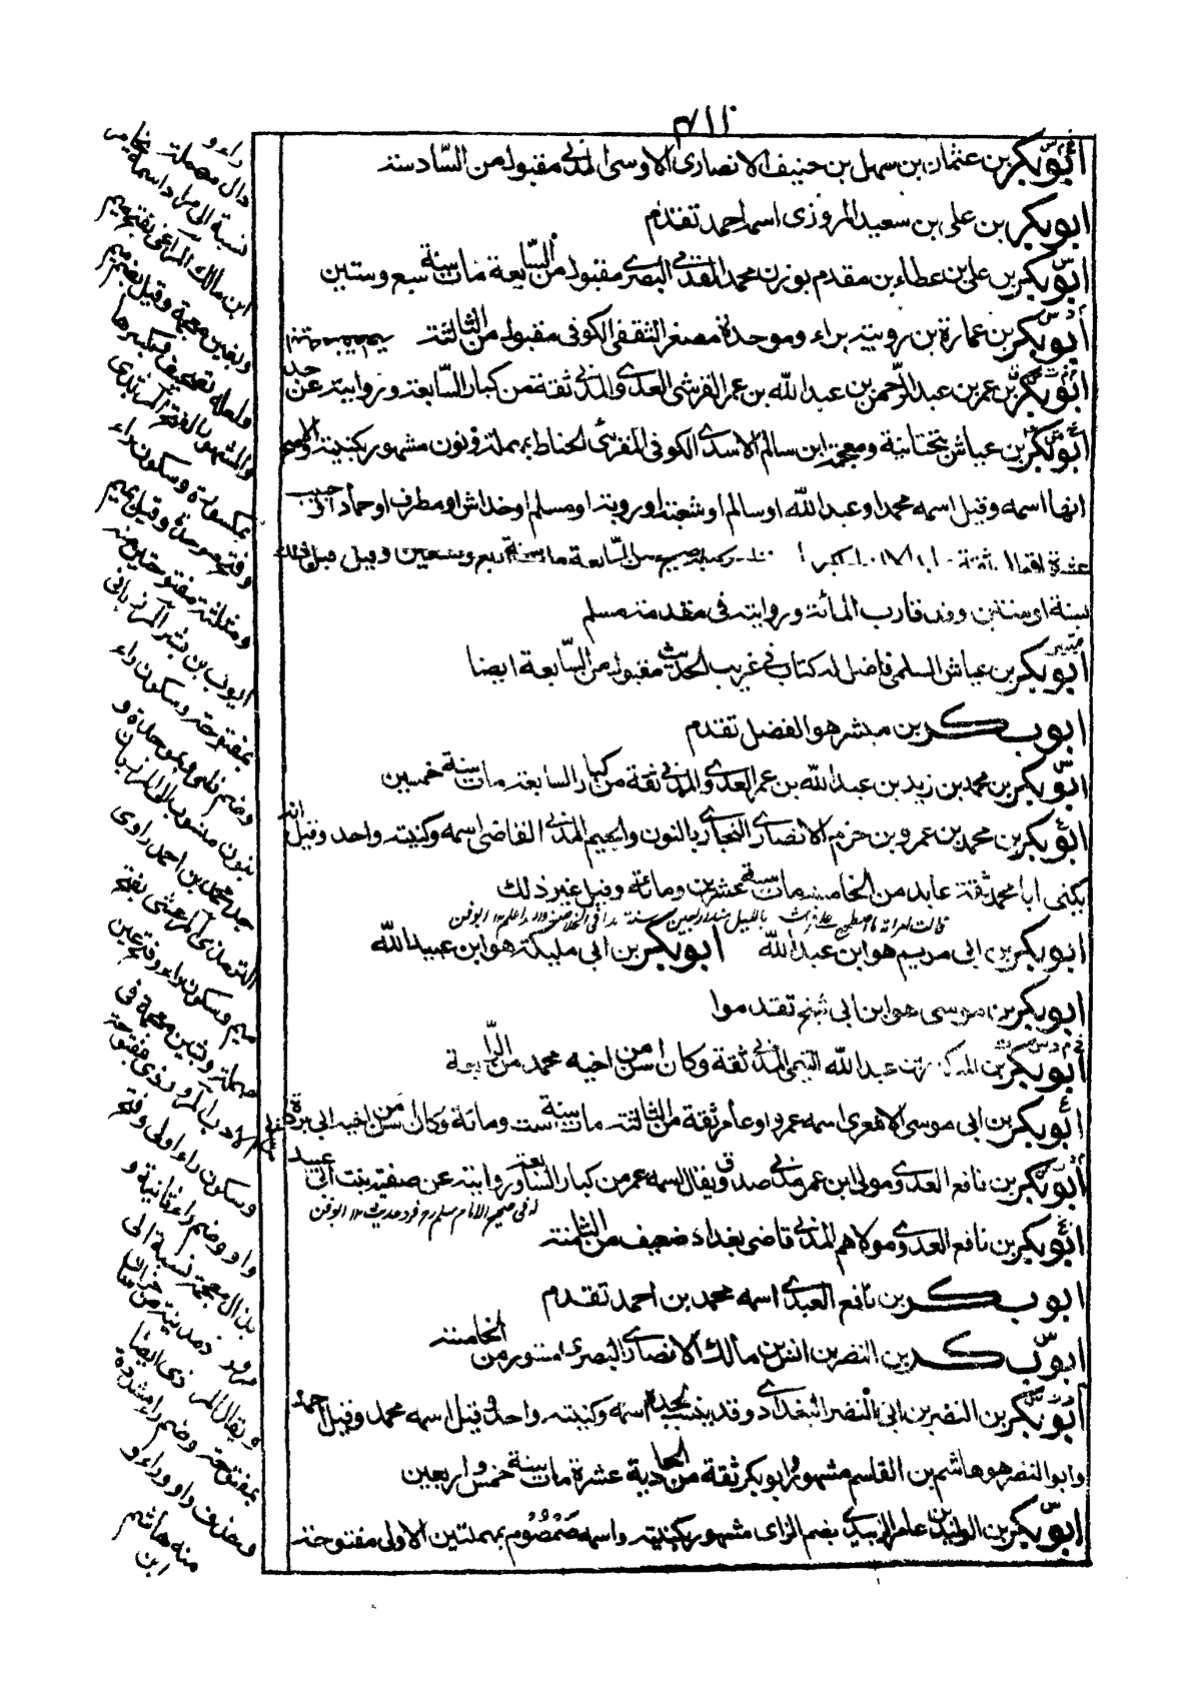 ابوبكر بن عثمان بن سهل بن حنيف الانصاري الاوسي المدني مقبول من السادسة
ابوبكر بن علي بن سعيد المروزي اسمه احمد تقدم
ابوبكر بن علي بن عطاء بن مقدم بوزن محمد المقدمي البصري مقبول من السابعة مات سنة سبع وستين
ابوبكر بن عمارة بن رويبة براء وموحدة مصغر الثقفي الكوفي مقبول من الثالثة
ابوبكر بن عمر بن عبد الرحمن بن عبد الله بن عمر القرشي العدوي المدني ثقة من كبار السابعة وروايته عن جد
ابوبكر بن عياش بتحتانية ومعجمة ابن سالم الاسدي الكوفي المقرئ الحناط بمهملة ونون مشهور بكنيته والاصح
انها اسمه وقيل اسمه محمد او عبد الله او سالم او شعبة او روبة او مسلم او خداش او مطرف او حماد او حبيب
عشرة اقوال ثقة من السابعة مات سنة اربع وتسعين وقيل قبل ذلك
بسنة او سنتين وقد قارب المائة وروايته في مقدمة مسلم
ابوبكر بن عياش السلمي فاضل له كتاب في غريب الحديث مقبول من السابعة ايضا
ابوبكر بن مبشر هو الفضل تقدم
ابوبكر بن محمد بن زيد بن عبد الله بن عمر العدوي المدني ثقة من كبار السابعة مات سنة خمسين
ابوبكر بن محمد بن عمرو بن حزم الانصاري النجاري بالنون والجيم المدني القاضي اسمه وكنيته واحد وقيل انه
يكنى ابا محمد ثقة عابد من الخامسة مات سنة عشرين ومائة وقيل غير ذلك
ابوبكر بن ابي مريم هو ابن عبد الله ابوبكر بن ابي مليكة هو ابن عبيد الله
ابوبكر بن موسى هو ابن ابي شيخ تقدموا
ابوبكر بن المنكدر بن عبد الله التيمي المدني ثقة وكان اسن من اخيه محمد من الرابعة
ابوبكر بن ابي موسى الاشعري اسمه عمرو او عامر ثقة من الثالثة مات سنة ست ومائة وكان اسن من اخيه ابي بردة
ابوبكر بن نافع العدوي مولى ابن عمر مدني صدوق ويقال اسمه عمر من كبار السابعة وروايته عن صفية بنت ابي عبيد
ابوبكر بن نافع العدوي مولاهم المدني قاضي بغداد ضعيف من الثامنة
ابوبكر بن نافع العبدي اسمه محمد بن احمد تقدم
ابوبكر بن النضر بن انس بن مالك الانصاري البصري مستور من الخامسة
ابوبكر بن النضر بن ابي النضر البغدادي وقد ينسب لجده اسمه وكنيته واحد وقيل اسمه محمد وقيل احمد
وابو النضر هو هاشم بن القاسم مشهور وابوبكر ثقة من الحادية عشرة مات سنة خمس واربعين
ابوبكر بن الوليد بن عامر الزبيدي بضم الزاي مشهور بكنيته واسمه صمصوم بمهملتين الاولى مفتوحة
نسبة الى مراد اسمه يحابر
ابن مالك المراغي بفتح ميم
وبغين معجمة وقيل بضم ميم
والمشهور بالفتح المرثدي
ومثلثة مفتوحة منه
ايوب بن بشر المرزباني
بمفتوحة وسكون راء
وضم زاي وبموحدة و
بنون منسوب الى المرزبان
جد محمد بن احمد راوي
الترمذي المرعشي بفتح
ميم وسكون راء وفتح عين
مهملة وبشين معجمة في
الادب المروروذي مفتوحة
وسكون راء اولى وفتح
واو وضم راء ثانية و
بذال معجمة نسبة الى
ويقال المروذي ايضا
بمفتوحة وضم راء مشددة
وبحذف واو وراء و
منه هاشم
ابن